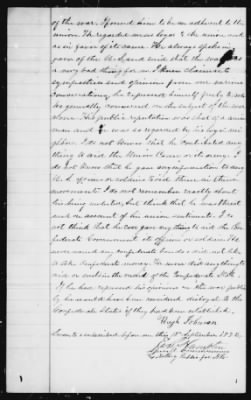 of the war. I found him to be an adherent to the
union. I regarded him as loyal to the union and
as in favor of its cause. He always spoke in
favor of the U.S. and said that the war was
a very bad thing for us. I knew claimants
sympathies and opinions from our various
conversations, he expressed himself freely to me
We generally conversed on the subject of the war
alone. His public reputation was that of a union
man and he was so regarded by his loyal neigh-
bors. I do not know that he contributed any
thing to aid the Union Cause or its army. I
do not know that he gave any information to any
U.S. officers or soldiers to aid them in their
movements. I do not remember exactly about
his being molested, but think that he was threat
ened on account of his union sentiments. I do
not think that he ever gave any thing to aid the Con-
federate Government its officers or soldiers. He
never owned any confederate bonds and did not like
the confederate money. He never did any thing to
aid or sustain the credit of the Confederate States.
If he had expressed his opinions on the war publicly
he would have been considered disloyal to the
Confederate States if they had been established.
Hugh Johnson
Sworn to & subscribed before me this 15 September 1872